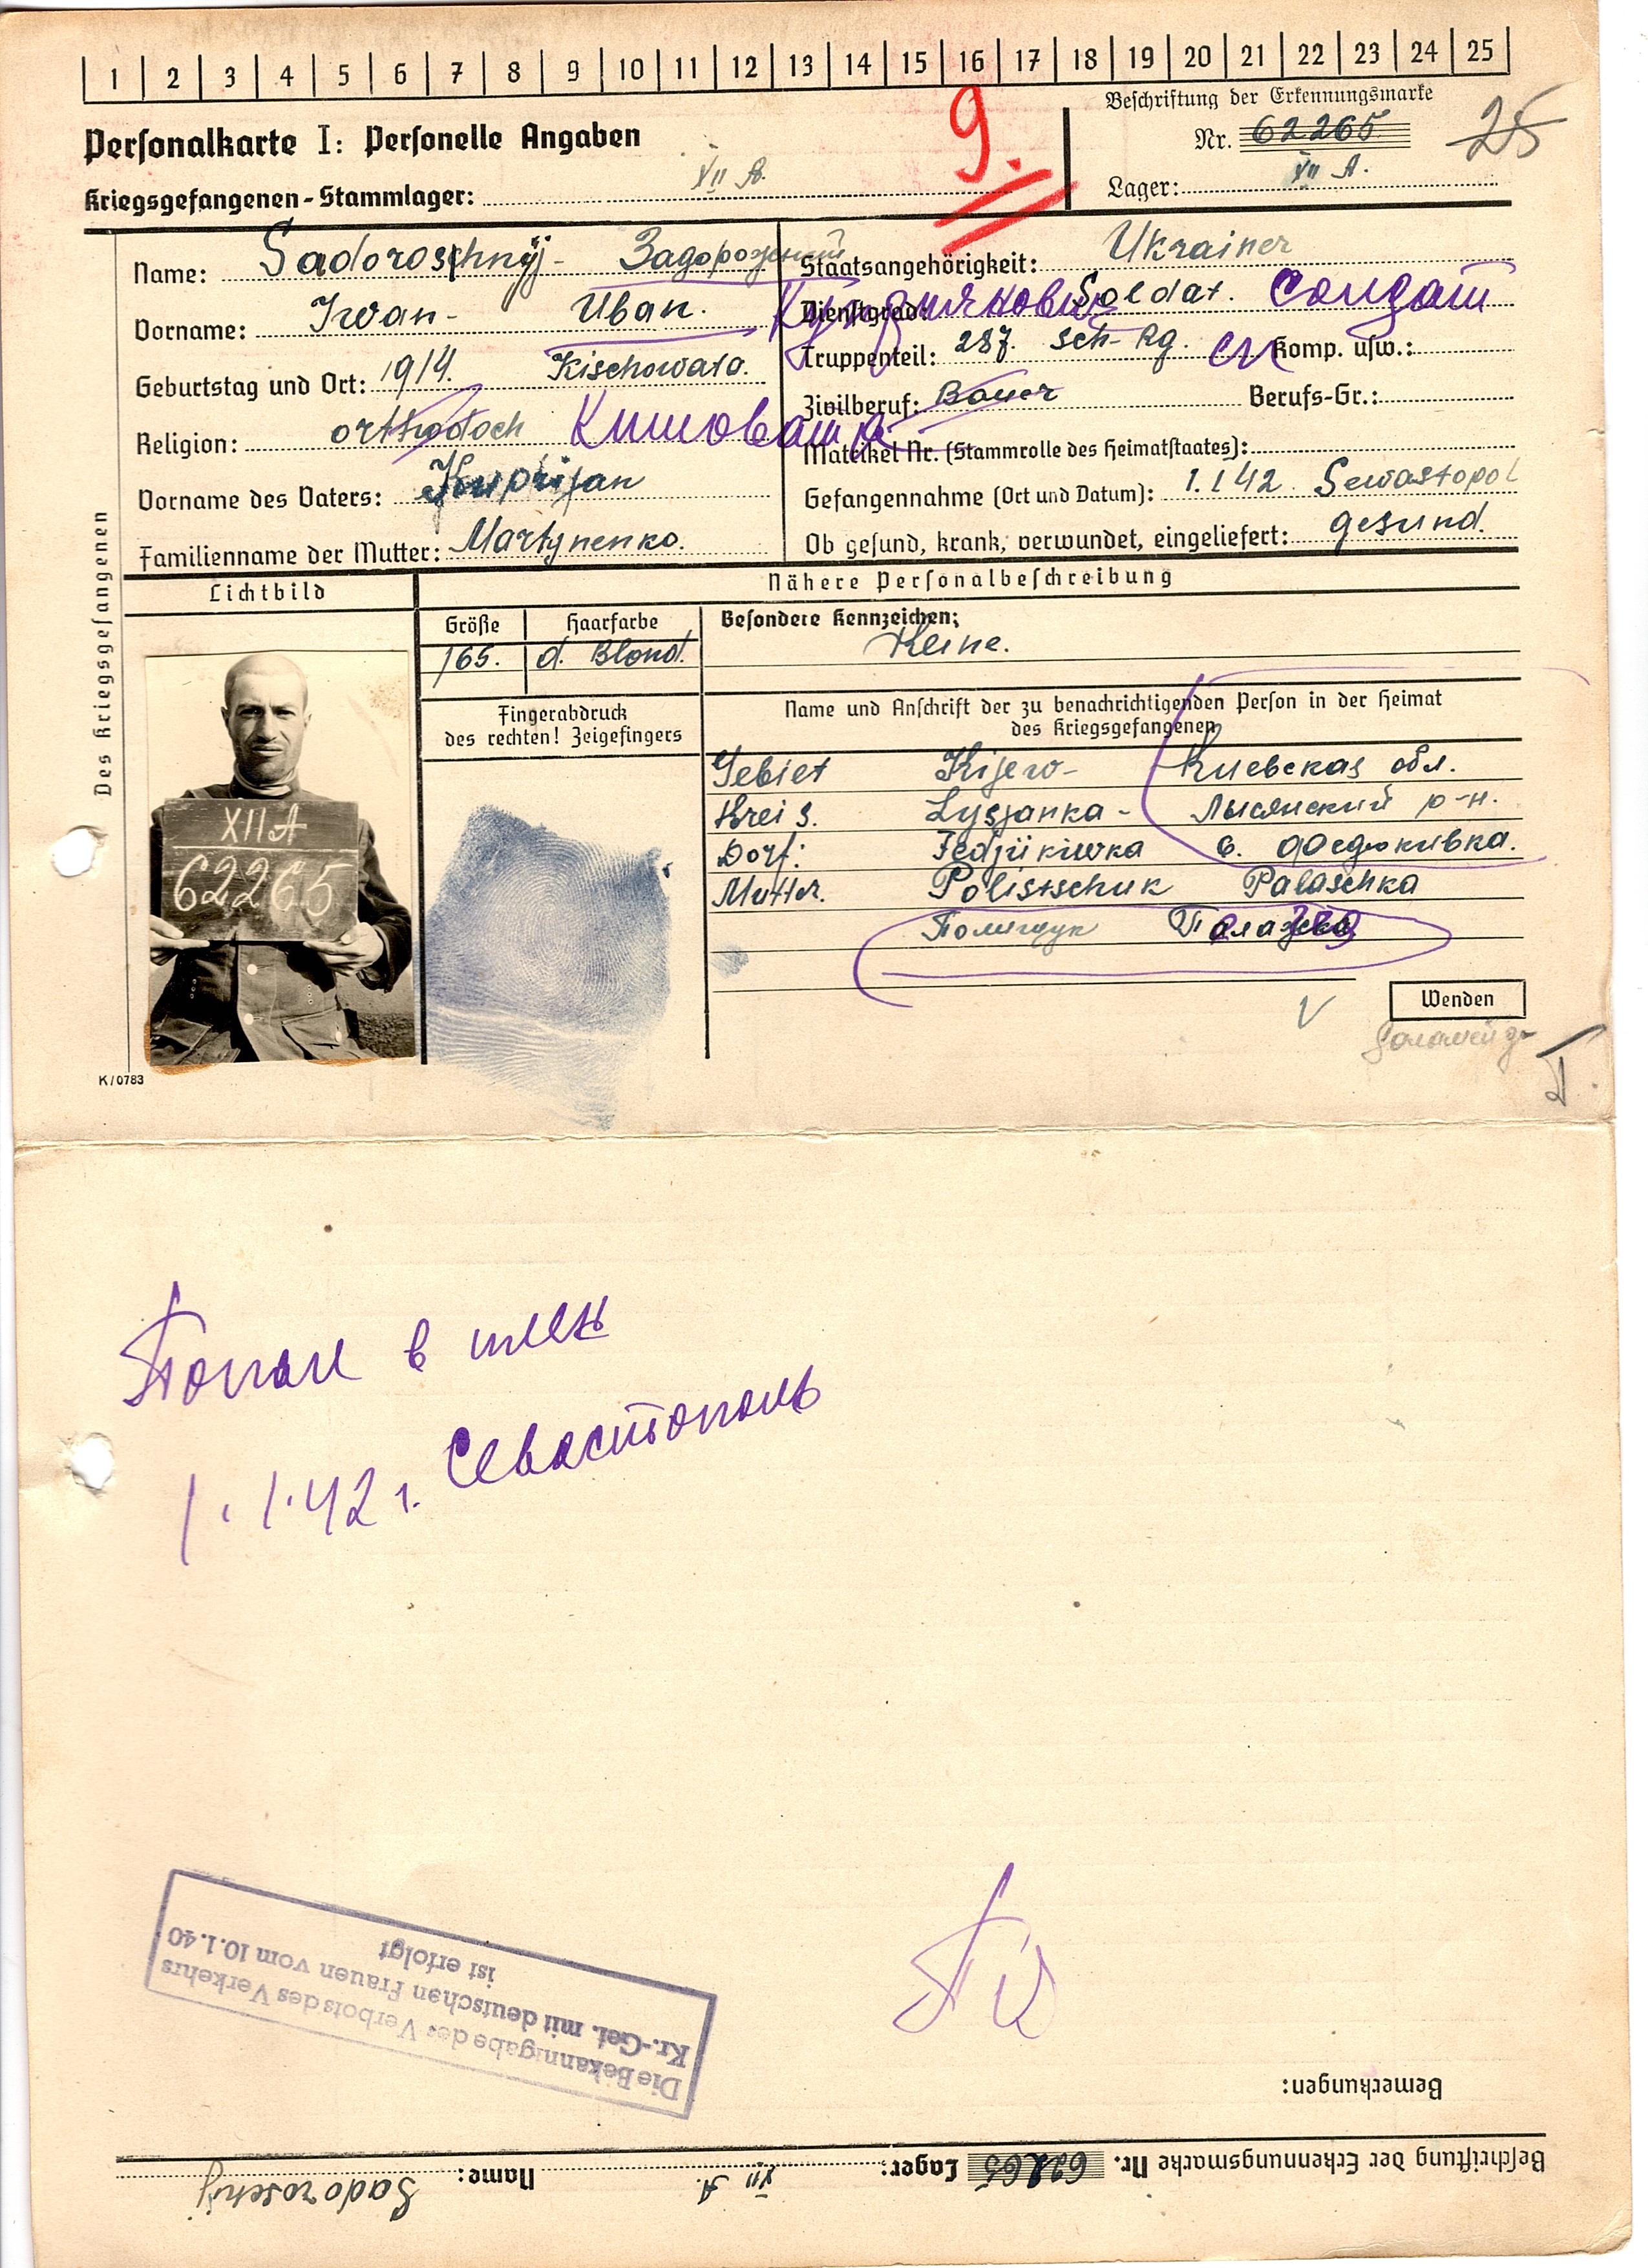 1 2 3 4 5 6 7 8 9 10 11 12 13 14 15 16 17 18 19 20 21 22 23 24 25
Beschriftung der Erkennungsmarke
Personalkarte I: Personelle Angaben
9.
Nr. 62265
25
Kriegsgefangenen-Stammlager: XII A.
Lager: XII A.
Des Kriegsgefangenen
Name: Sadoroschnyj- Задорожный
Vorname: Iwan- Иван.
Geburtstag und Ort: 1914. Kischowata.
Religion: orthodoch Кишовата
Vorname des Vaters: Kuprijan
Familienname der Mutter: Martynenko.
Staatsangehörigkeit: Ukrainer
Куприянович
Dienstgrad: Soldat. Солдат
Truppenteil: 287. Sch-Rg. сп Komp. usw.:
Zivilberuf: Bauer Berufs-Gr.:
Matrikel Nr. (Stammrolle des Heimatstaates):
Gefangennahme (Ort und Datum): 1.1.42. Sewastopol
Ob gesund, krank, verwundet, eingeliefert: gesund.
Lichtbild
Nähere Personalbeschreibung
Größe Haarfarbe
165. d. Blond.
Besondere Kennzeichen:
Keine.
Fingerabdruck
des rechten! Zeigefingers
Name und Anschrift der zu benachrichtigenden Person in der Heimat
des Kriegsgefangenen
Gebiet Kijew- Киевская обл.
Kreis. Lysjanka- Лысянский р-н.
Dorf: Fedjükiwka с. Федюкивка.
Mutter. Polistschuk Palaschka
Полищук Палажка
XII A
62265
Wenden
K/0783
Попал в плен
1.1.42 г. Севастополь
Die Bekanntgabe des Verbots des Verkehrs
Kr.-Gef. mit deutschen Frauen vom 10.1.40
ist erfolgt
Bemerkungen:
Beschriftung der Erkennungsmarke Nr. 62265 Lager: XII A. Name: Sadoroschnyj